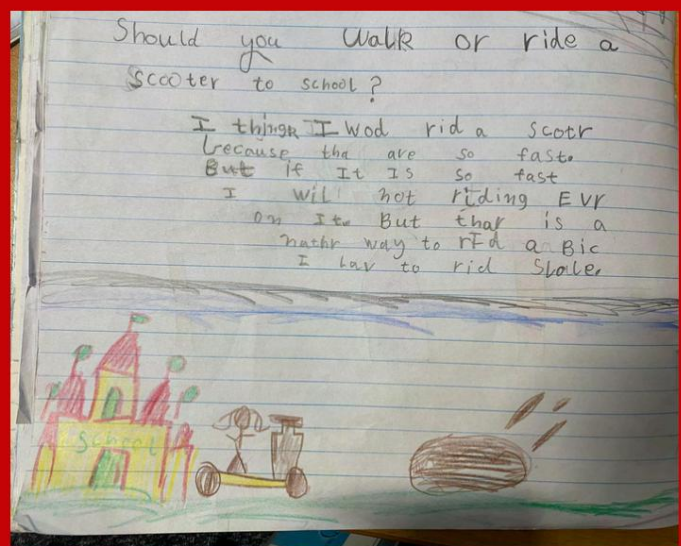 Should you Walk or ride a
Scooter to school?
I thingk I wod rid a scotr
because tha are so fast.
But if It IS so fast
I wil not riding EVr
on It. But thar is a
nathr way to rId a Bic
I lav to rid Slole.
School